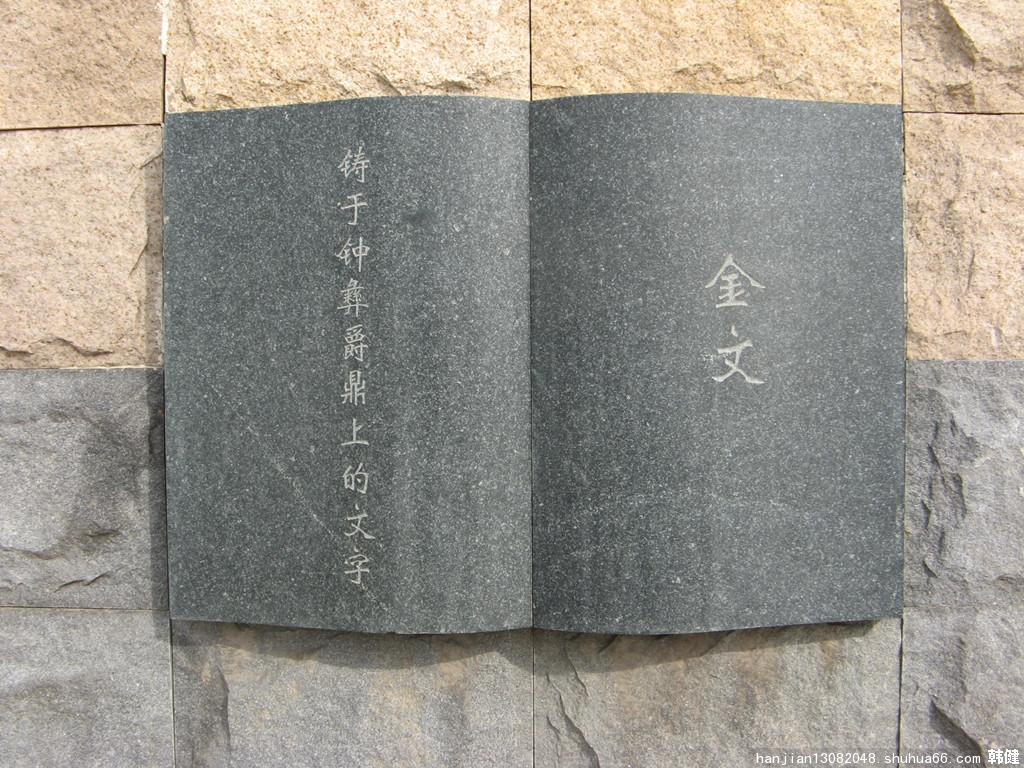 金文
铸于钟彝爵鼎上的文字
hanjian13082048.shuhua66.com 韩健